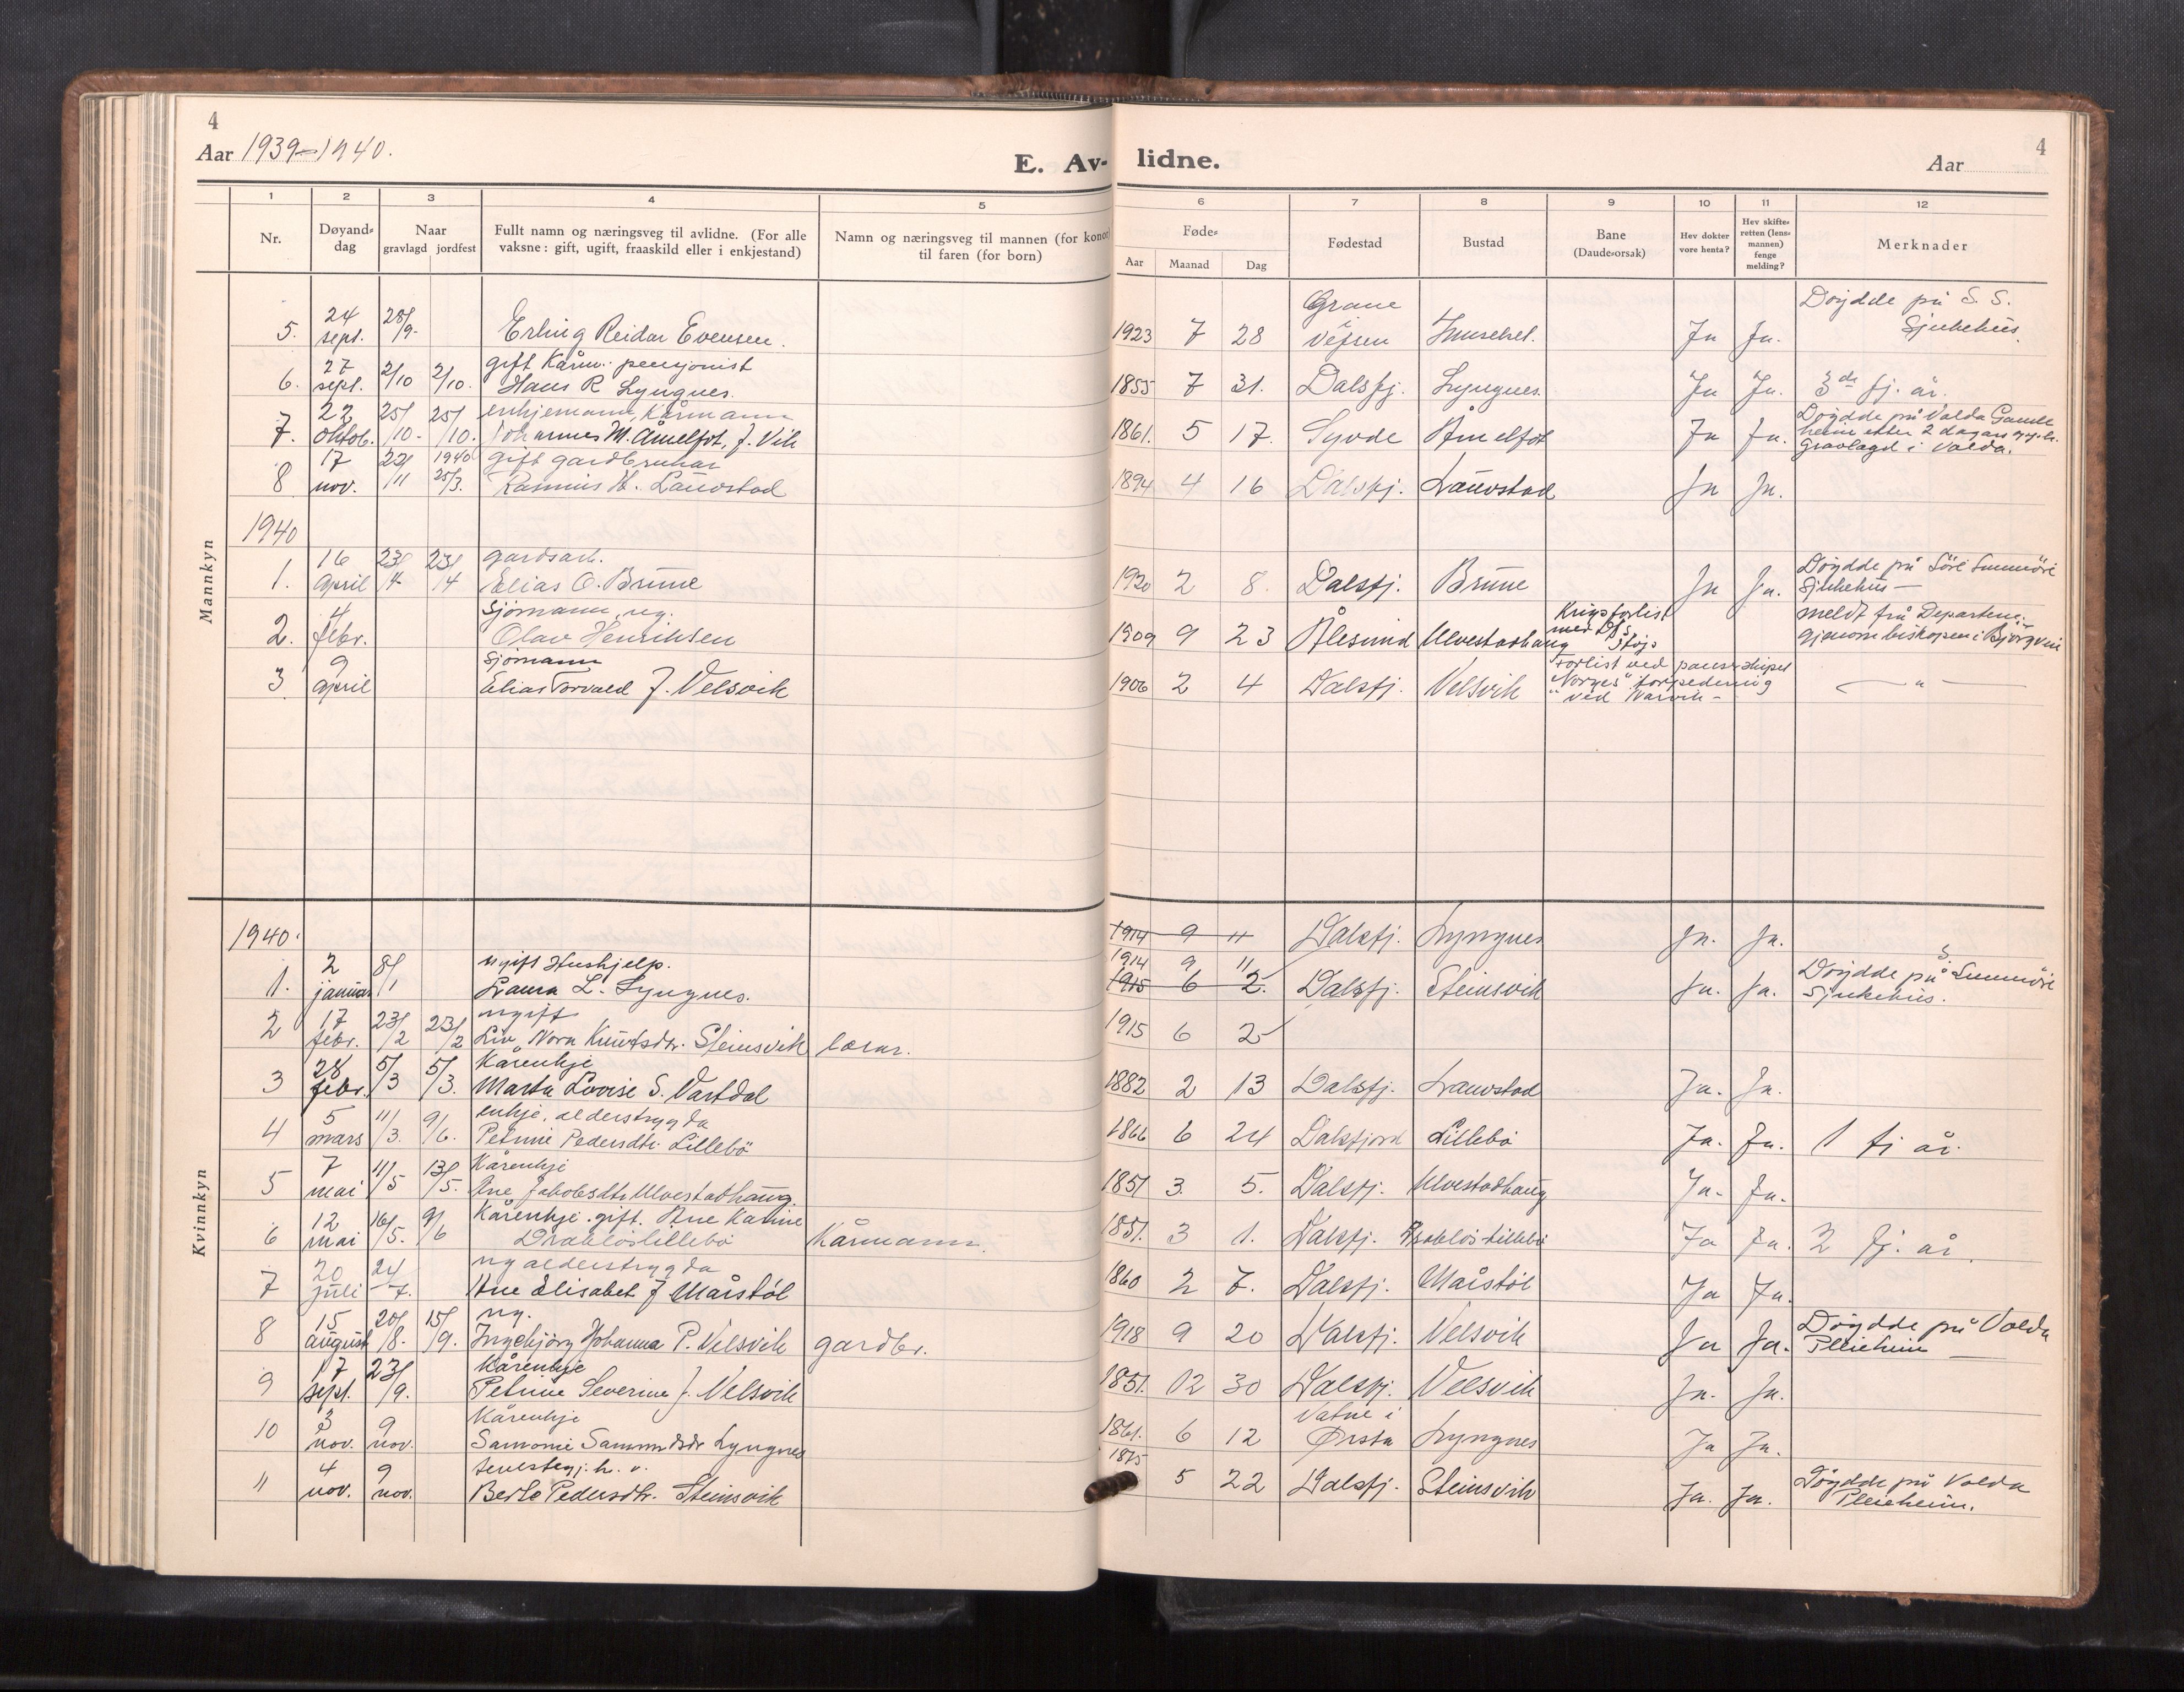 4
Aar 1939-1940.
E. Av-
lidne.
4
Aar
1 2 3 4 5 6 7 8 9 10 11 12
Nr.
Døyand-
dag
Naar
gravlagd jordfest
Fullt namn og næringsveg til avlidne. (For alle
vaksne: gift, ugift, fraaskild eller i enkjestand)
Namn og næringsveg til mannen (for konor)
til faren (for born)
Føde-
Aar Maanad Dag
Fødestad
Bustad
Bane
(Daude-orsak)
Hev dokter
vore henta?
Hev skifte-
retten (lens-
mannen)
fenge
melding?
Merknader
Mannkyn
24 28/ Grane Døydde på S. S.
5. sept. 9. Erling Reidar Evensen. 1923 7 28 i Vefsen Ja Ja. Sjukehus.
27 gift Kårm. pensjonist
6. sept. 2/10 2/10. Hans R Lyngnes. 1855 7 31. Dalsfj. Lyngnes. Ja Ja. 3de fj. år.
22 25/ 25/ enkjemann, Kårmann Døydde på Volda Gamle
7. oktob. /10. /10. Johannes M. Åmelfot, f. Vik 1861. 5 17. Syvde Åmelfot Ja Ja. heim etter 2 dagars
Gravlagd i Volda.
17 22/ 1940 gift gardbrukar
8 nov. /11 25/3. Rasmus H. Lauvstad 1894 4 16 Dalsfj. Lauvstad Ja Ja.
1940
16 23/ 23/ gardsarb. Døydde på Søre Sunnmøre
1. April /4 /4 Elias O. Brune 1920 2 8. Dalsfj. Brune Ja Ja. Sjukehus
4 Sjømann, ug. Krigsforlist meldt frå Departem.
2. febr. Olav Henriksen 1909 9 23 Ålesund Ulvestadhaug med D/S gjenom biskopen i Bjørgvin
9 Sjømann Forlist ved panserskipet
3 april Elias Torvald J. Velsvik 1906 2 4 Dalsfj. Velsvik "Norges" torpedering — " —
ved Narvik -
Kvinnkyn
1940. 1914 9 11 Dalsfj. Lyngnes Ja. Ja.
2 8/ ugift Hushjelp. 1914 9 11 S.
1. januar /1 Laura L. Lyngnes. 1915 6 2. Dalsfj. Steinsvik Ja. Ja. Døydde på Sunnmøre
Sjukehus.
17 23/ 23/ ugift
2 febr. /2 /2 Liv Nora Knutsdtr. Steinsvik lærar. 1915 6 2
28 5/ 5/ Kårenkje
3 febr. /3 /3. Marta Lovise S. Vartdal 1882 2 13 Dalsfj. Lauvstad Ja. Ja.
5 11/ 9/ enkje, alderstrygda
4 mars /3. /6. Petrine Pedersdtr. Lillebö 1866 6 24 Dalsfjord Lillebö Ja. Ja. 1 fj år.
7 11/ 13/ Kårenkje
5 mai /5 /5. Ane Jakobsdtr Ulvestadhaug. 1851 3. 5. Dalsfj. Ulvestadhaug Ja. Ja.
12 16/ 9/ Kårenkje. gift. Ane Karine
6 mai /5. /6 Drabløslillebö Kårmann. 1851. 3 1. Dalsfj. Drabløs-Lillebö Ja Ja. 2 fj. år.
20 24 ug alderstrygda
7 juli - 7. Ane Elisabet J Måistöl 1860 2 7. Dalsfj. Måistöl Ja Ja.
15 20/ 15/ ug. Døydde på Volda
8 august /8. /9. Ingebjörg Johanna P. Velsvik gardbr. 1918 9 20 Dalsfj. Velsvik Ja Ja. Pleieheim
17 23/ Kårenkje
9 sept. /9. Petrine Severine J. Velsvik 1851. 12 30 Dalsfj. Velsvik Ja. Ja.
3 9 Kårenkje Vatne i
10 nov. nov. Lyngnes 1861. 6 12 Ørsta Lyngnes Ja Ja.
4 9 1875 Døydde på Volda
11 nov. nov. Berte Pedersdtr. Steinsvik 5 22 Dalsfj. Steinsvik Ja. Ja. Pleieheim.